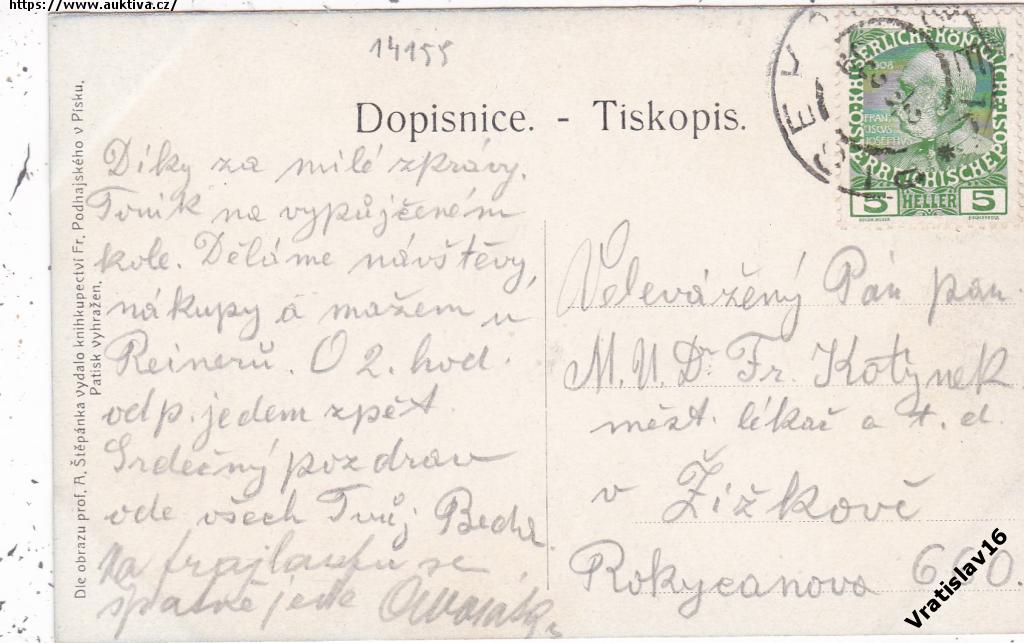 https://www.auktiva.cz/
14155
Dopisnice. - Tiskopis.
Díky za milé zprávy.
Toník na vypůjčeném
kole. Děláme návštěvy,
nákupy a mažem u
Reinerů. O 2. hod.
odp. jedem zpět.
Srdečný pozdrav
ode všech Tvůj
Na frajlaufu se
špatně jede
Velevážený Pán pan
M.U.Dr. Fr. Kotynek
měst. lékař a t. d.
v Žižkově
Rokycanova 660.
Dle obrazu prof. A. Štěpánka vydalo knihkupectví Fr. Podhajského v Písku.
Patisk vyhražen.
KAISERLICHE KÖNIGLICHE
ÖSTERREICHISCHE POST
1908
FRAN
CISCVS
IOSEPHVS
5 HELLER 5
Vratislav16